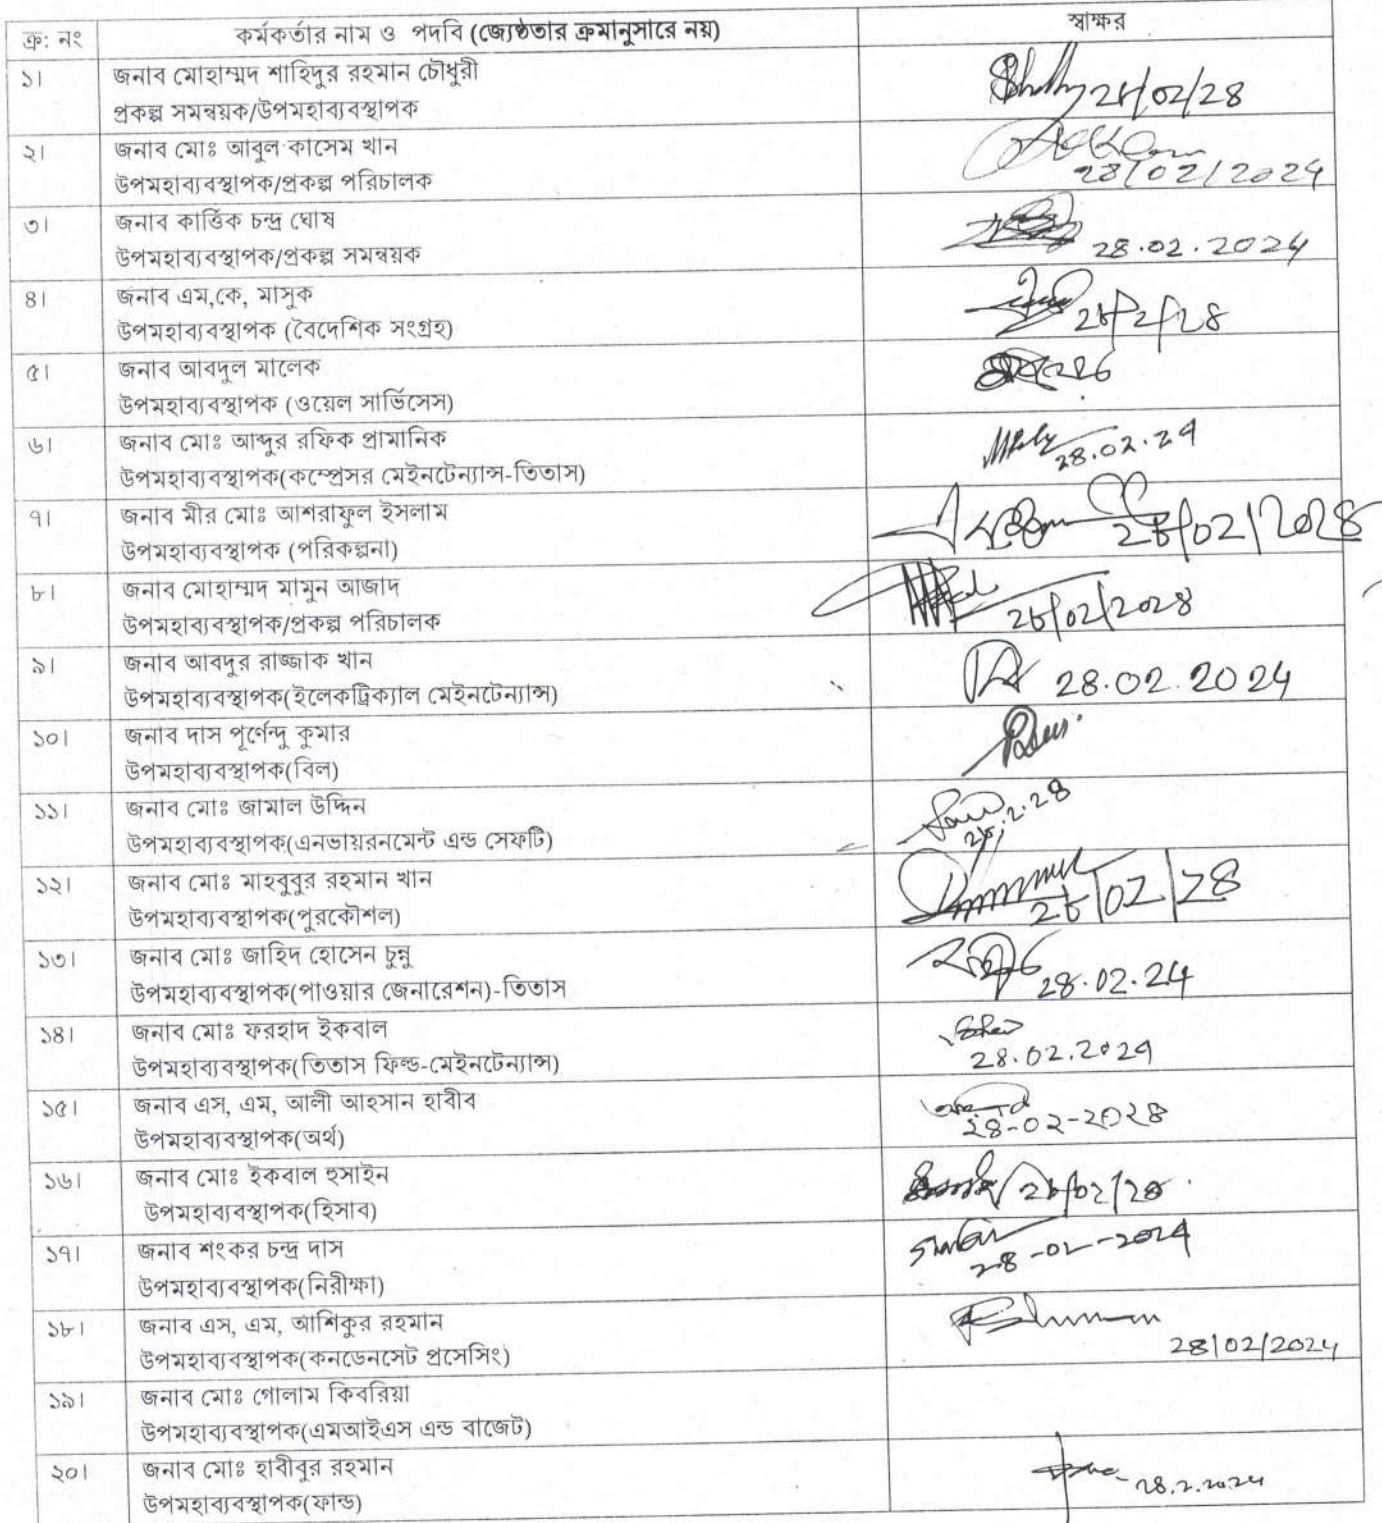 ক্র: নং কর্মকর্তার নাম ও পদবি (জ্যেষ্ঠতার ক্রমানুসারে নয়) স্বাক্ষর
১। জনাব মোহাম্মদ শাহিদুর রহমান চৌধুরী
প্রকল্প সমন্বয়ক/উপমহাব্যবস্থাপক ২৮/০২/২৪
২। জনাব মোঃ আবুল কাসেম খান
উপমহাব্যবস্থাপক/প্রকল্প পরিচালক 28/02/2024
৩। জনাব কার্ত্তিক চন্দ্র ঘোষ
উপমহাব্যবস্থাপক/প্রকল্প সমন্বয়ক 28.02.2024
৪। জনাব এম,কে, মাসুক
উপমহাব্যবস্থাপক (বৈদেশিক সংগ্রহ) ২৮/২/২৪
৫। জনাব আবদুল মালেক
উপমহাব্যবস্থাপক (ওয়েল সার্ভিসেস)
৬। জনাব মোঃ আব্দুর রফিক প্রামানিক
উপমহাব্যবস্থাপক(কম্প্রেসর মেইনটেন্যান্স-তিতাস) 28.02.24
৭। জনাব মীর মোঃ আশরাফুল ইসলাম
উপমহাব্যবস্থাপক (পরিকল্পনা) ২৮/০২/২০২৪
৮। জনাব মোহাম্মদ মামুন আজাদ
উপমহাব্যবস্থাপক/প্রকল্প পরিচালক ২৮/০২/২০২৪
৯। জনাব আবদুর রাজ্জাক খান
উপমহাব্যবস্থাপক(ইলেকট্রিক্যাল মেইনটেন্যান্স) 28.02.2024
১০। জনাব দাস পূর্ণেন্দু কুমার
উপমহাব্যবস্থাপক(বিল)
১১। জনাব মোঃ জামাল উদ্দিন
উপমহাব্যবস্থাপক(এনভায়রনমেন্ট এন্ড সেফটি) ২৮.২.২৪
১২। জনাব মোঃ মাহবুবুর রহমান খান
উপমহাব্যবস্থাপক(পুরকৌশল) ২৮/০২/২৪
১৩। জনাব মোঃ জাহিদ হোসেন চুন্নু
উপমহাব্যবস্থাপক(পাওয়ার জেনারেশন)-তিতাস 28.02.24
১৪। জনাব মোঃ ফরহাদ ইকবাল
উপমহাব্যবস্থাপক(তিতাস ফিল্ড-মেইনটেন্যান্স) 28.02.2024
১৫। জনাব এস, এম, আলী আহসান হাবীব
উপমহাব্যবস্থাপক(অর্থ) ২৮-০২-২০২৪
১৬। জনাব মোঃ ইকবাল হুসাইন
উপমহাব্যবস্থাপক(হিসাব) ২৮/০২/২৪
১৭। জনাব শংকর চন্দ্র দাস
উপমহাব্যবস্থাপক(নিরীক্ষা) 28-02-2024
১৮। জনাব এস, এম, আশিকুর রহমান
উপমহাব্যবস্থাপক(কনডেনসেট প্রসেসিং) 28/02/2024
১৯। জনাব মোঃ গোলাম কিবরিয়া
উপমহাব্যবস্থাপক(এমআইএস এন্ড বাজেট)
২০। জনাব মোঃ হাবীবুর রহমান
উপমহাব্যবস্থাপক(ফান্ড) 28.2.2024